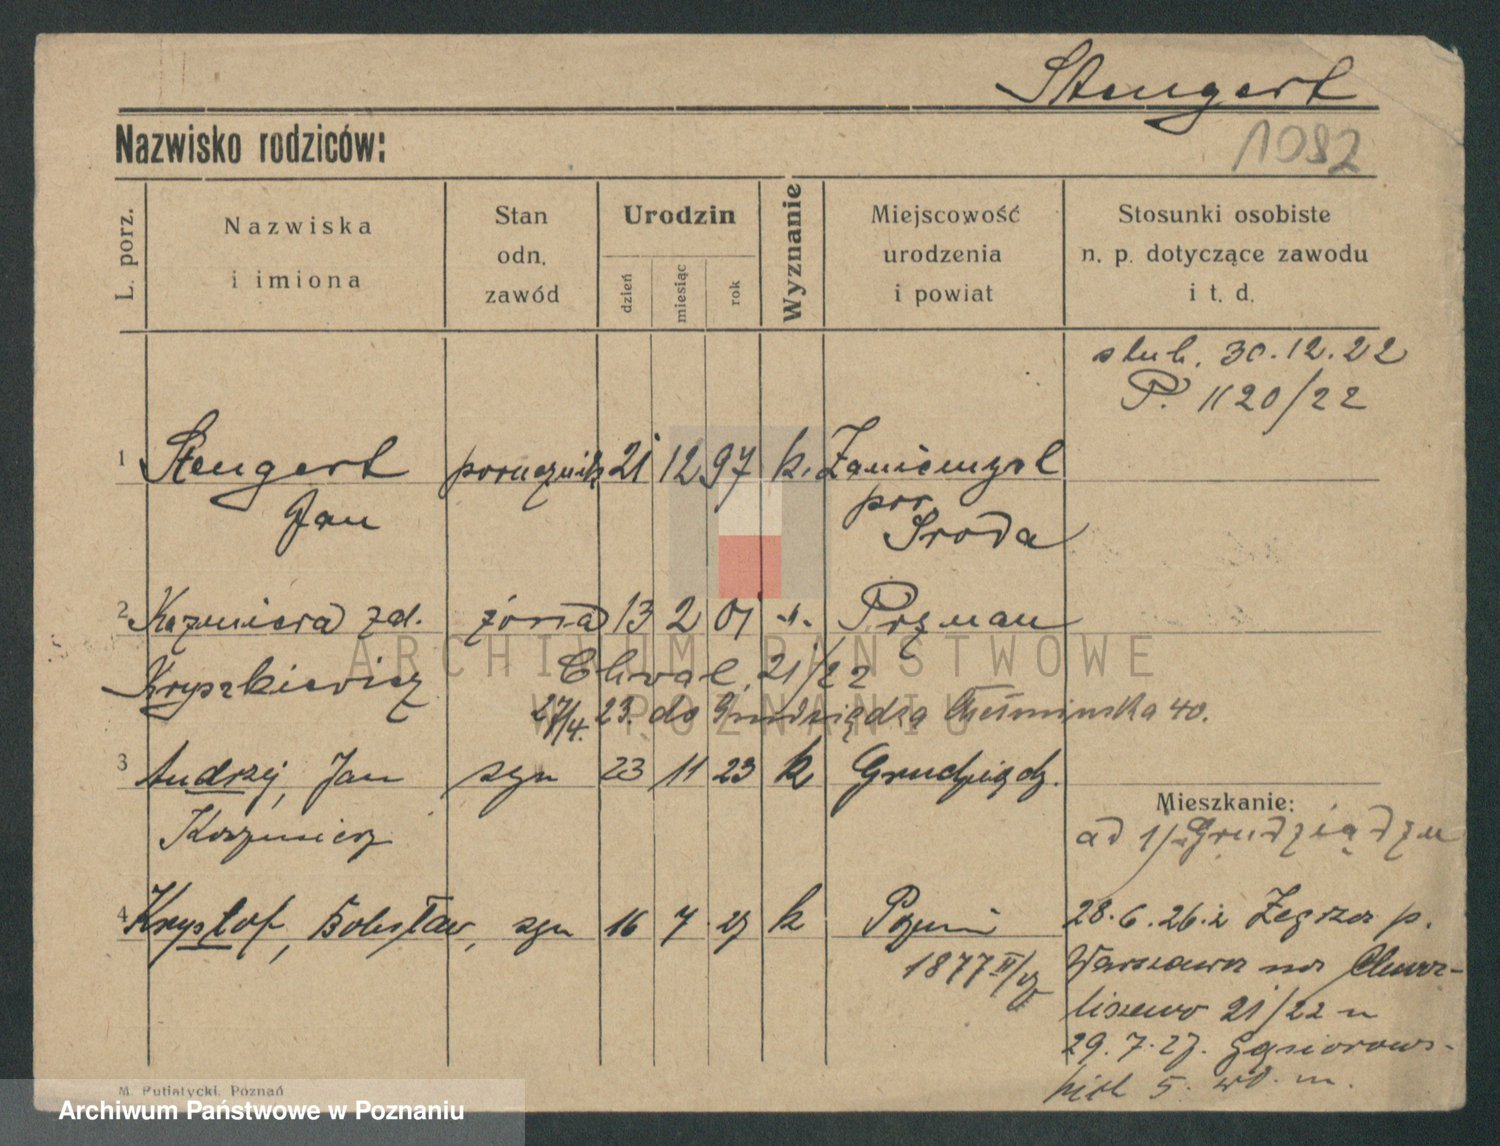 Stengert
1082
Nazwisko rodziców:
L. porz.
Nazwiska
i imiona
Stan
odn.
zawód
Urodzin
dzień
miesiąc
rok
Wyznanie
Miejscowość
urodzenia
i powiat
Stosunki osobiste
n. p. dotyczące zawodu
i t. d.
slub. 30.12.22
P. 1120/22
1 Stengert porucznik 21 12 97 k. Zaniemysl
Jan pow. Sroda
2 Kazmiera zd. żona 13 2 01 -"- Poznan
Kryszkiewicz Chwal. 21/22
27/4. 23. do Grudziądza Chełmińska 40.
3 Andrzej, Jan syn 23 11 23 k Grudziądz.
Kazmierz
Mieszkanie:
ad 1/ Grudziądzu
4 Krysztof, Bolesław, syn 16 7 27 k Poznań
1877 II/27
28.6.26. z Zegrza p.
Warszawa na Chwa-
liszewo 21/22 u
29.7.27. Gąsiorows-
kich 5. wł. m.
ARCHIWUM PAŃSTWOWE
W POZNANIU
M. Putiatycki, Poznań
Archiwum Państwowe w Poznaniu